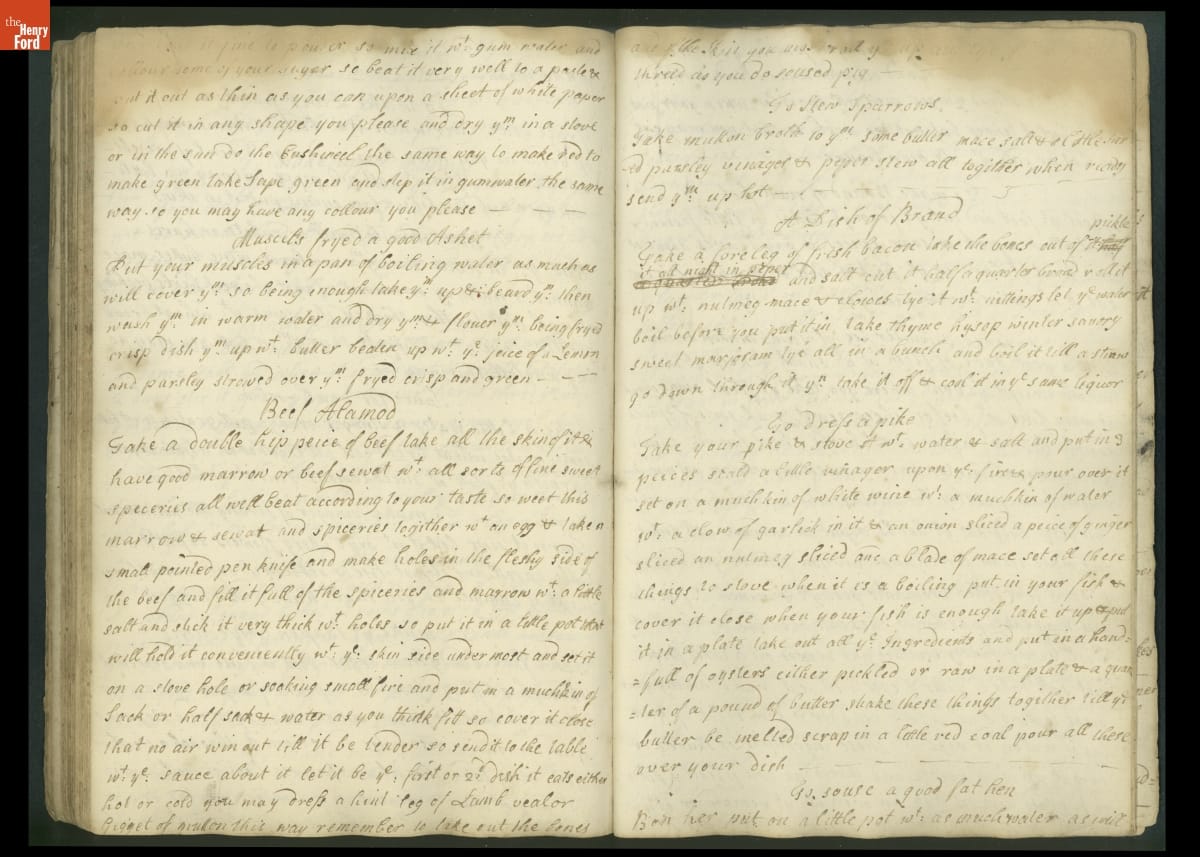 the
Henry
Ford
so mix it wt gum water and
collour some of your suger so beat it very well to a paste &
put it out as thin as you can upon a sheet of white paper
so cut it in any shape you please and dry ym in a stove
or in the sun do the Cushineel the same way to make red to
make green take Sape green and step it in gumwater the same
way so you may have any collour you please — — —
Muscels fryed a good Ashet
Put your muscles in a pan of boiling water as much as
will cover ym so being enough take ym up & beard ym then
wash ym in warm water and dry ym & flouer ym being fryed
crisp dish ym up wt butter beaten up wt ye joice of a Lemon
and parsley strowed over ym fryed crisp and green — — —
Beef Alamod
Take a double hip peice of beef take all the skin of it &
have good marrow or beef sewat wt all sorts of fine sweet
speceries all well beat according to your taste so weet this
marrow & sewat and spiceries together wt an egg & take a
small pointed pen knife and make holes in the fleshy side of
the beef and fill it full of the spiceries and marrow wt a little
salt and stick it very thick wt holes so put it in a little pot that
will hold it conveniently wt ye skin side undermost and set it
on a stove hole or soaking small fire and put in a muchkin of
Sack or half sack & water as you think fitt so cover it close
that no air win out till it be tender so send it to the table
wt ye sauce about it let it be ye first or 2d dish it eats either
hot or cold you may dress a hint leg of Lamb veal or
Gigget of mutton this way remember to take out the bones
thried as you do soused pig —
To Stew Sparrows
Take mutton broth to ym some butter mace salt & a little
parsley vinager & peper stew all togither when ready
send ym up hot — — —
A Dish of Brand
pickle
Take a foreleg of frish bacon take the bones out of it
it all night in peper
and salt cut it half a quarter broad roll it
up wt nutmeg mace & clowes tye it wt nittings let ye water
boil before you put it in take thyme hysop winter savory
sweet marjoram tye all in a bunch and boil it till a straw
go down through it yn take it off & cool it in ye same liquor
To dress a pike
Take your pike & stove it wt water & salt and put in 3
peices scald a little vinager upon ye fire & pour over it
set on a muchkin of white wine wt a muchkin of water
wt a clow of garlick in it & an onion sliced a peice of ginger
sliced an nutmeg sliced and a blade of mace set all these
things to stove when it is a boiling put in your fish &
cover it close when your fish is enough take it up & put
it in a plate take out all ye Ingredients and put in a hand=
=full of oysters either pickled or raw in a plate & a quar
=ter of a pound of butter shake these things together till ye
butter be melted scrap in a little red coal pour all these
over your dish — — — —
To souse a good fat hen
Bon her put on a little pot wt as much water as will